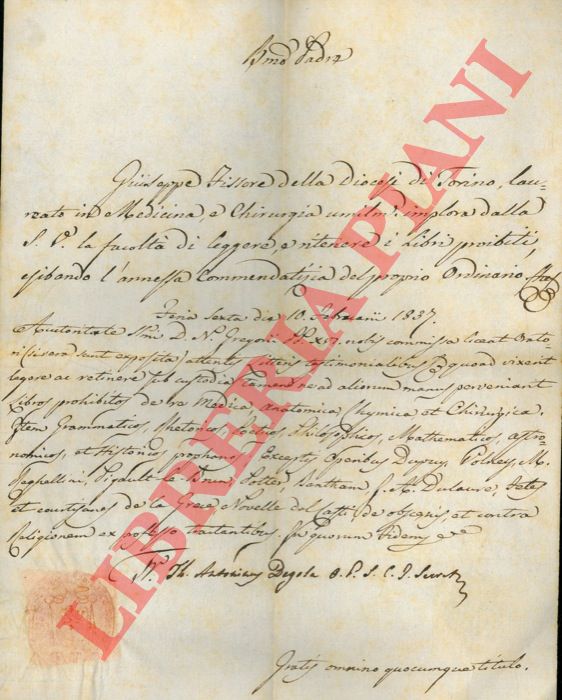 Bmo Padre
Giuseppe Fissore della Diocesi di Torino, lau-
reato in Medicina, e Chirurgia umilm.e implora dalla
S. V. la facoltà di leggere, e ritenere i Libri proibiti,
esibendo l'annessa Commendatizia del proprio Ordinario.
Feria sexta die 10. Februarii 1837.
Auctoritate SSmi D. N. Gregorii PP. XVI. nobis commissa liceat Orato-
ri (si vera sunt exposita) attentis litteris testimonialibus quoad vixerit
legere ac retinere sub custodia tamen ne ad aliorum manus perveniant
libros prohibitos de re Medica, Anatomica, Chymica et Chirurgica.
Item Grammaticos, Rhetoricos, Poeticos, Philosophicos, Mathematicos, Astro-
nomicos, et Historicos prophanos, Exceptis Operibus Dupuy, Volney, M.
Reghellini, Pigault le Brun, Potter, Bentham, J. A. Dulaure, Fetes
et courtisanes de la Grece Novelle del Casti de obscenis, et contra
Religionem ex professo tractantibus. In quorum Fidem &c
Fr. Th. Antoninus Degola O. P. S. C. I. Secret.
Gratis omnino quocumque titulo.
LIBRERIA PIANI